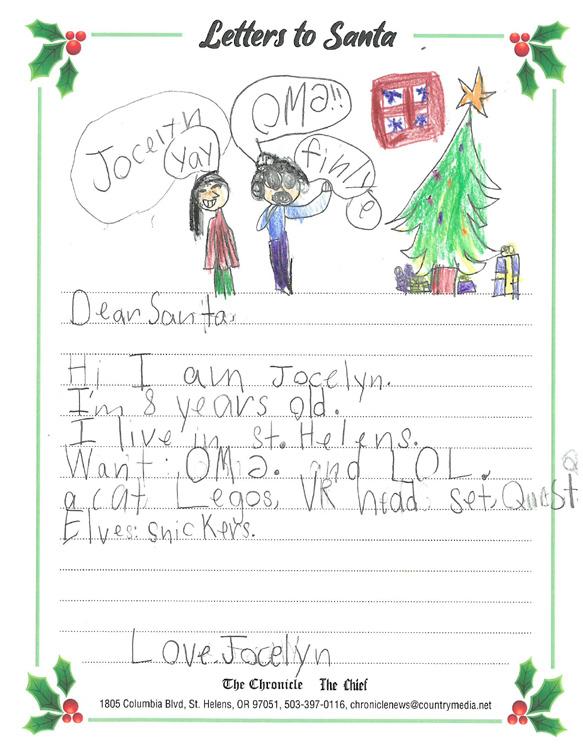 Letters to Santa
Jocelyn
Yay
OMG!!
finlly
Dear Santa,
Hi I am Jocelyn.
I'm 8 years old.
I live in st. Helens.
Want: OMG. and LOL.
a cat, Legos, VR head set, Quest
Elves: snickers.
Love, Jocelyn
The Chronicle The Chief
1805 Columbia Blvd, St. Helens, OR 97051, 503-397-0116, chroniclenews@countrymedia.net